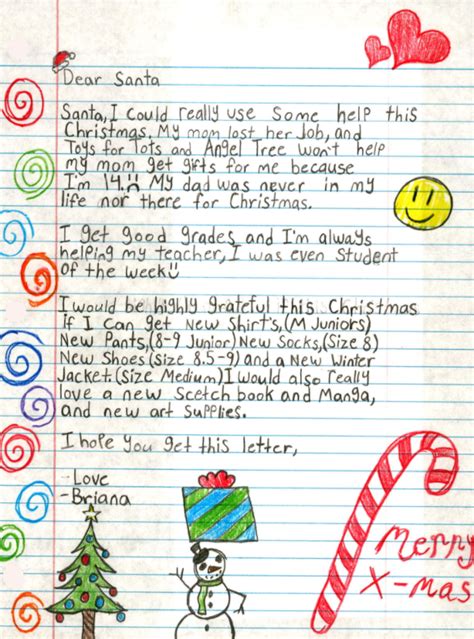 Dear Santa
Santa, I could really use some help this
Christmas. My mom lost her Job, and
Toys for Tots and Angel Tree won't help
my mom get gifts for me because
I'm 14. My dad was never in my
life nor there for Christmas.
I get good grades, and I'm always
helping my teacher, I was even Student
Of the week
I would be highly grateful this Christmas
If I can get New Shirt's, (M Juniors)
New Pants, (8-9 Junior) New Socks, (Size 8)
New Shoes (Size 8.5-9) and a New Winter
Jacket. (Size Medium) I would also really
love a new Scetch book and Manga,
and new art supplies.
I hope you get this letter,
-Love
-Briana
Merry
X-mas